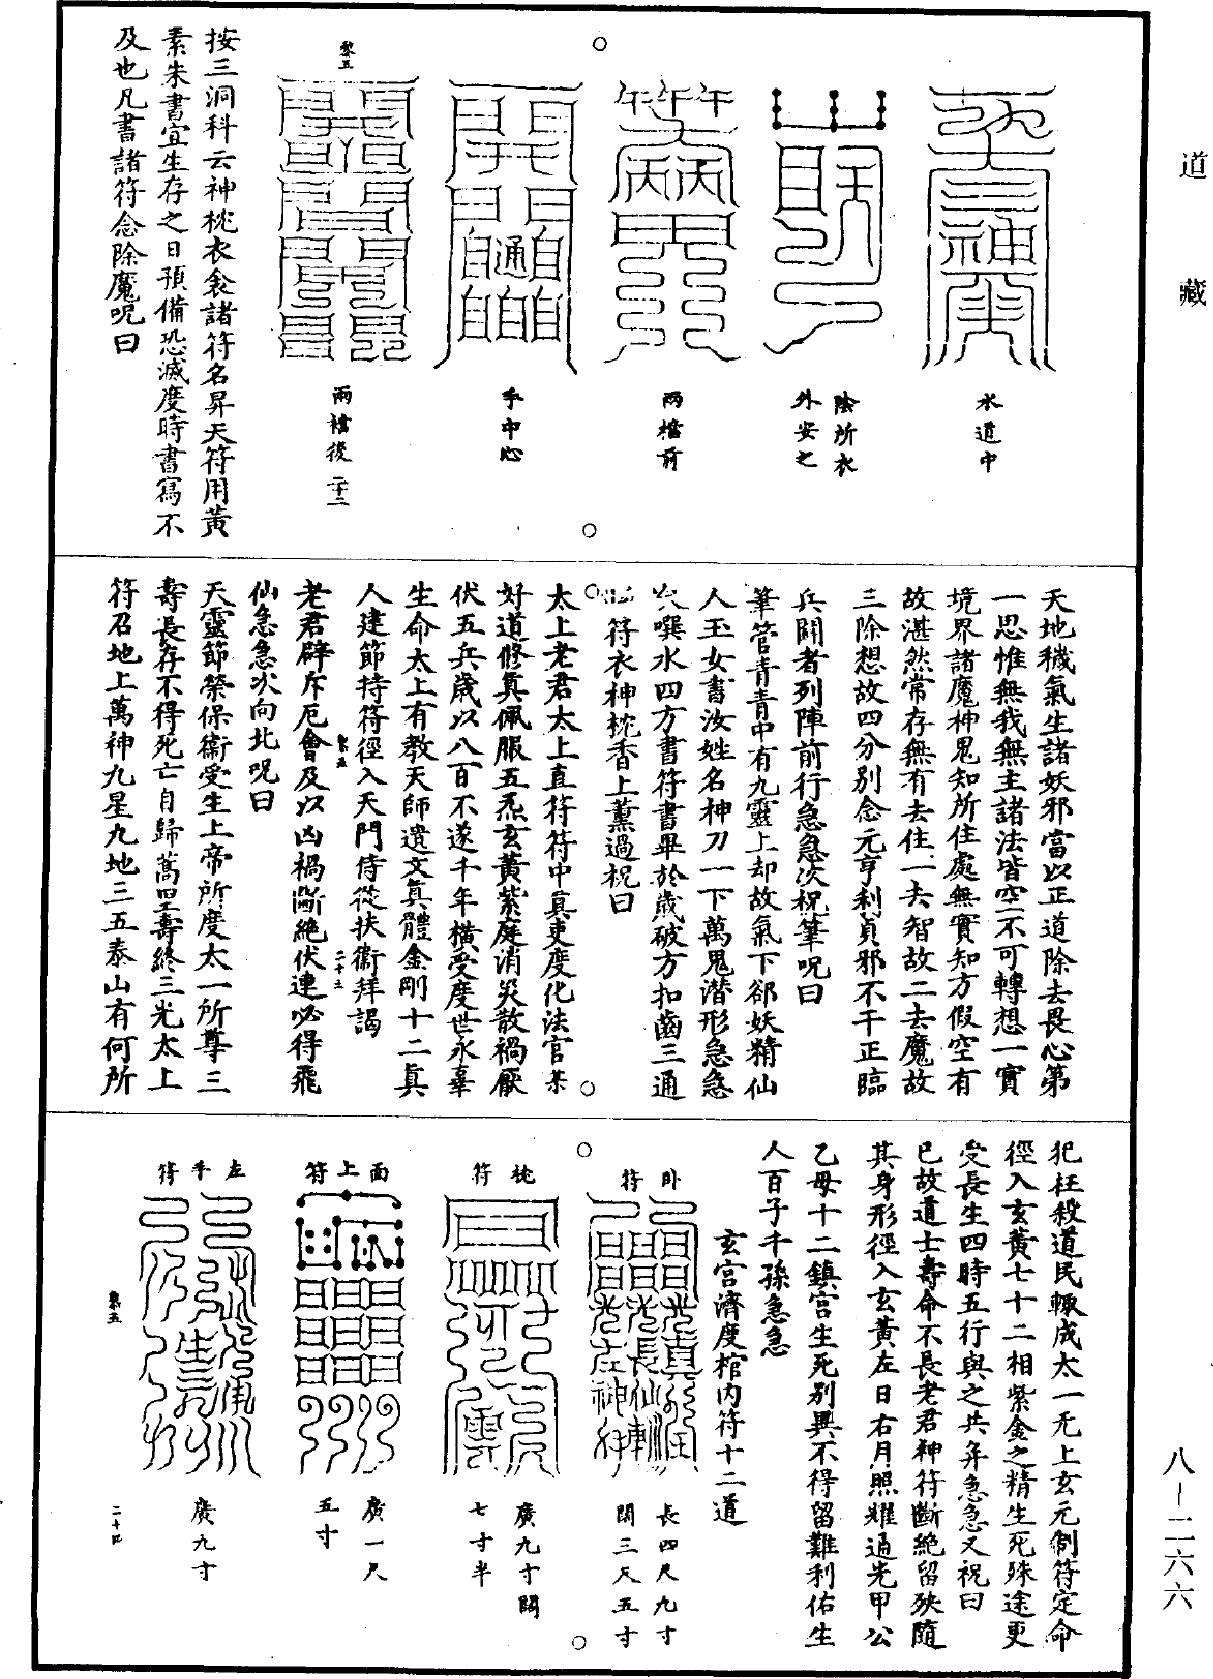 道藏
水道中
陰所衣
外安之
兩襠前
手中心
兩襠後
二十二
按三洞科云神枕衣衾諸符名昇天符用黃
素朱書宜生存之日預備恐滅度時書寫不
及也凡書諸符念除魔呪曰
天地穢氣生諸妖邪當以正道除去畏心第
一思惟無我無主諸法皆空不可轉想一實
境界諸魔神鬼知所住處無實知方假空有
故湛然常存無有去住一去智故二去魔故
三除想故四分別念元亨利貞邪不干正臨
兵鬬者列陣前行急急次祝筆呪曰
筆管青青中有九靈上却故氣下邰妖精仙
人玉女書汝姓名神刀一下萬鬼潛形急急
次噀水四方書符書畢於歲破方扣齒三通
符衣神枕香上薰過祝曰
太上老君太上直符符中真吏度化法官某
好道修真佩服五炁玄黃紫庭消災散禍厭
伏五兵歲以八百不遂千年橫受度世永辜
生命太上有教天師遺文真體金剛十二真
人建節持符徑入天門侍從扶衞拜謁
二十三
老君辟斥厄會及以凶禍斷絕伏連必得飛
仙急急次向北呪曰
天靈節榮保衞受生上帝所度太一所尊三
壽長存不得死亡自歸蒿里壽終三光太上
符召地上萬神九星九地三五泰山有何所
犯枉殺道民輙成太一无上玄元制符定命
徑入玄黃七十二相紫金之精生死殊途更
受長生四時五行與之共并急急又祝曰
已故道士壽命不長老君神符斷絕留殃隨
其身形徑入玄黃左日右月照耀通光甲公
乙母十二鎮宮生死別異不得留難利佑生
人百子千孫急急
玄宮濟度棺內符十二道
卧符
長四尺九寸
闊三尺五寸
枕符
廣九寸闊
七寸半
面上符
廣一尺
五寸
左手符
廣九寸
二十四
八-二六六